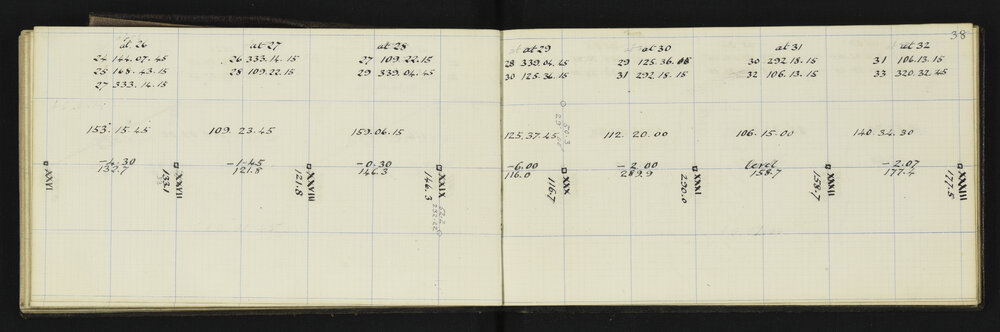 38
at 26
24 144.07.45
25 168.43.15
27 333.14.15
153.15.45
-4.30
132.7
XXVI
133.1
XXVII
at 27
26 333.14.15
28 109.22.15
109.23.45
-1.45
121.8
121.8
XXVIII
at 28
27 109.22.15
29 339.04.45
159.06.15
-0.30
146.3
146.3
XXIX
at 29
28 339.04.45
30 125.36.15
125.37.45
-6.00
116.0
116.7
XXX
at 30
29 125.36.08
31 292.18.15
112.20.00
-2.00
289.9
290.0
XXXI
at 31
30 292.18.15
32 106.13.15
106.15.00
level
158.7
158.7
XXXII
at 32
31 106.13.15
33 320.32.45
140.34.30
-2.07
177.4
177.5
XXXIII